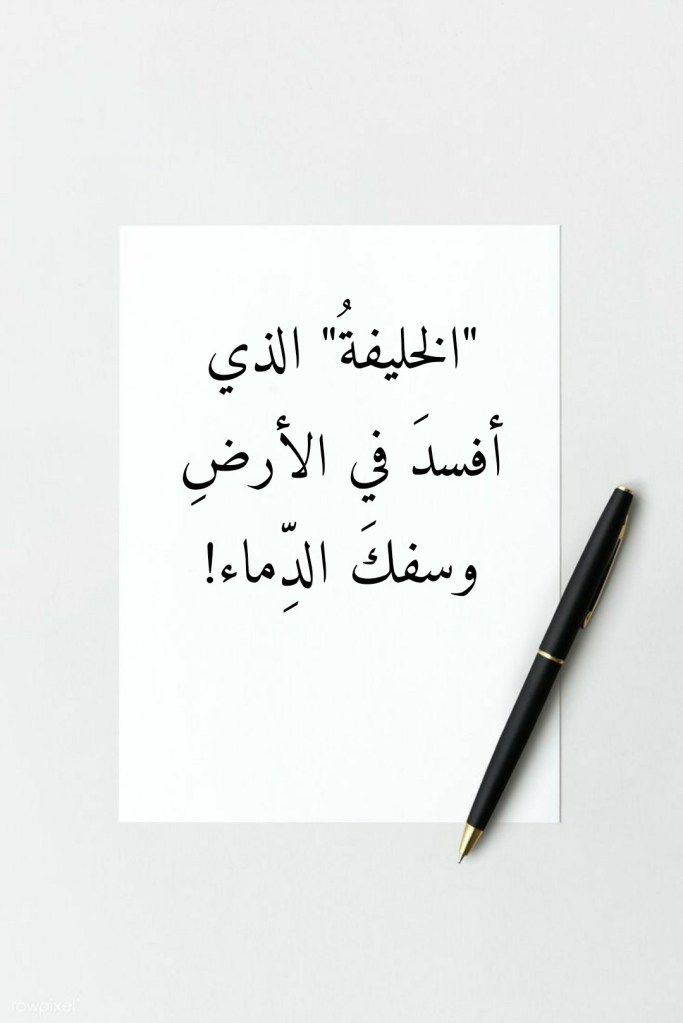 "الخليفةُ" الذي
أفسدَ في الأرضِ
وسفكَ الدِّماء!
rawpixel